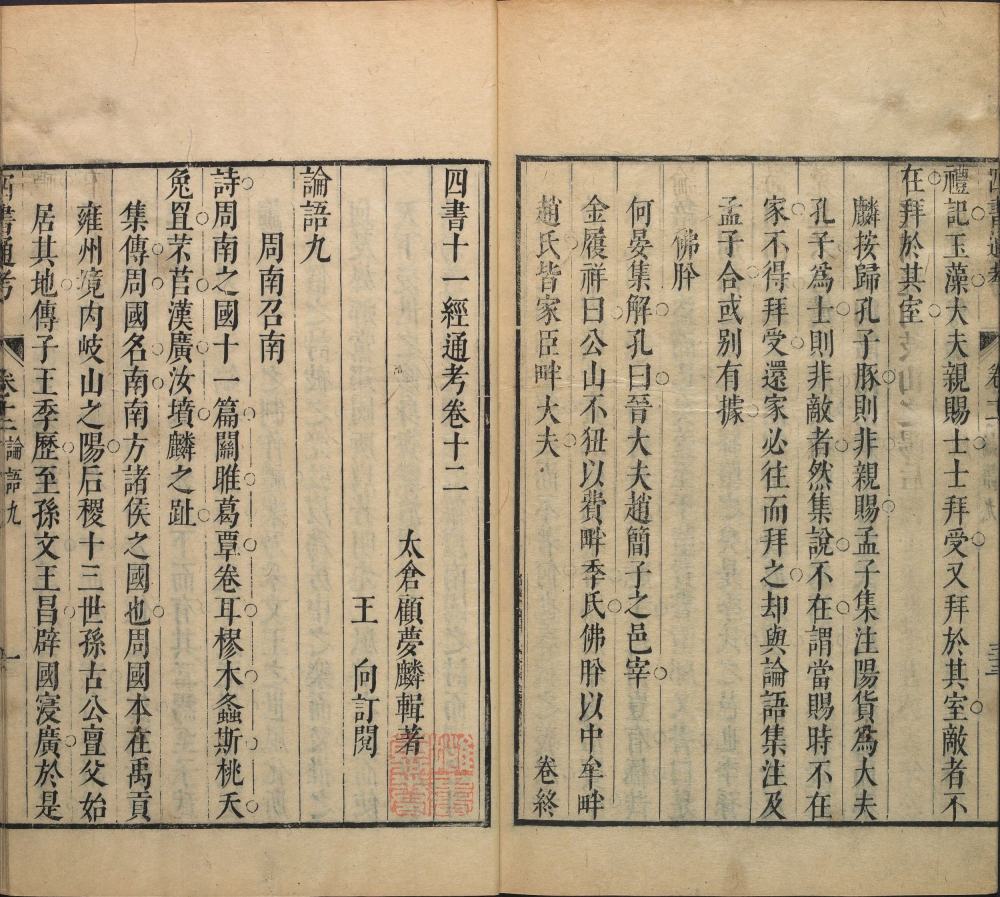 禮記玉藻大夫親賜士士拜受又拜於其室敵者不
在拜於其室
麟按歸孔子豚則非親賜孟子集注陽貨爲大夫
孔子爲士則非敵者然集說不在謂當賜時不在
家不得拜受還家必往而拜之却與論語集注及
孟子合或别有據
佛肸
何晏集解孔曰晉大夫趙簡子之邑宰
金履祥曰公山不狃以費畔季氏佛肸以中牟畔
趙氏皆家臣畔大夫
卷終
四書十一經通考卷十二
太倉顧夢麟輯著
王 向訂閱
論語九
周南召南
詩周南之國十一篇關雎葛覃卷耳樛木螽斯桃夭
兔罝芣苢漢廣汝墳麟之趾
集傳周國名南南方諸侯之國也周國本在禹貢
雍州境内岐山之陽后稷十三世孫古公亶父始
居其地傳子王季歷至孫文王昌辟國寖廣於是
四書通考
卷十二
論語九
一